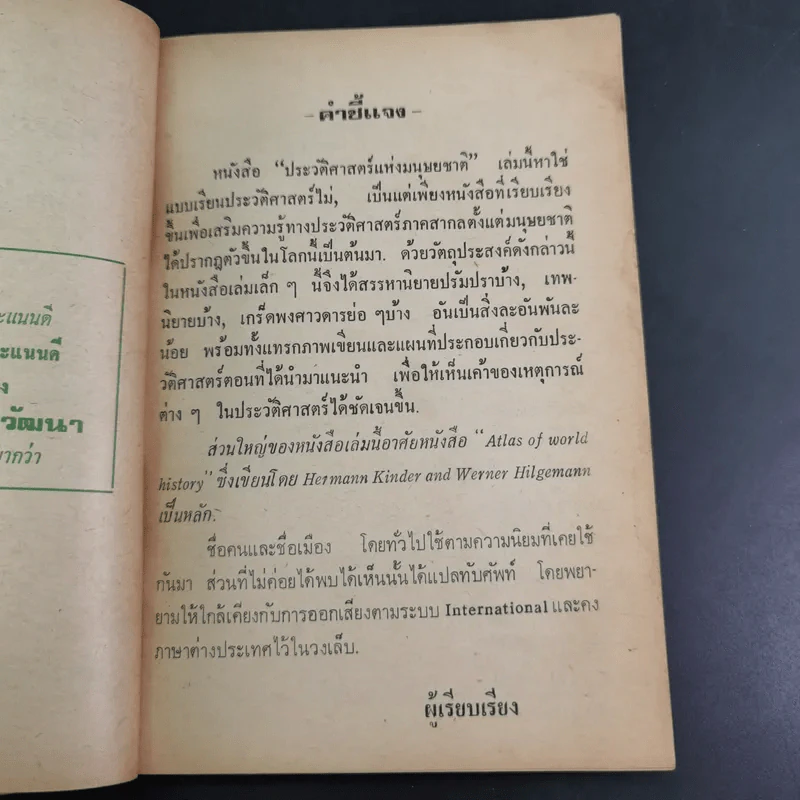 ะแนนดี
ะแนนดี
ง
วัฒนา
ากว่า
- คำชี้แจง -
หนังสือ “ประวัติศาสตร์แห่งมนุษยชาติ” เล่มนี้หาใช่
แบบเรียนประวัติศาสตร์ไม่, เป็นแต่เพียงหนังสือที่เรียบเรียง
ขึ้นเพื่อเสริมความรู้ทางประวัติศาสตร์ภาคสากลตั้งแต่มนุษยชาติ
ได้ปรากฏตัวขึ้นในโลกนี้เป็นต้นมา. ด้วยวัตถุประสงค์ดังกล่าวนี้
ในหนังสือเล่มเล็ก ๆ นี้จึงได้สรรหานิยายปรัมปราบ้าง, เทพ-
นิยายบ้าง, เกร็ดพงศาวดารย่อ ๆบ้าง อันเป็นสิ่งละอันพันละ
น้อย พร้อมทั้งแทรกภาพเขียนและแผนที่ประกอบเกี่ยวกับประ-
วัติศาสตร์ตอนที่ได้นำมาแนะนำ เพื่อให้เห็นเค้าของเหตุการณ์
ต่าง ๆ ในประวัติศาสตร์ได้ชัดเจนขึ้น.
ส่วนใหญ่ของหนังสือเล่มนี้อาศัยหนังสือ “Atlas of world
history” ซึ่งเขียนโดย Hermann Kinder and Werner Hilgemann
เป็นหลัก.
ชื่อคนและชื่อเมือง โดยทั่วไปใช้ตามความนิยมที่เคยใช้
กันมา ส่วนที่ไม่ค่อยได้พบได้เห็นนั้นได้แปลทับศัพท์ โดยพยา-
ยามให้ใกล้เคียงกับการออกเสียงตามระบบ International และคง
ภาษาต่างประเทศไว้ในวงเล็บ.
ผู้เรียบเรียง